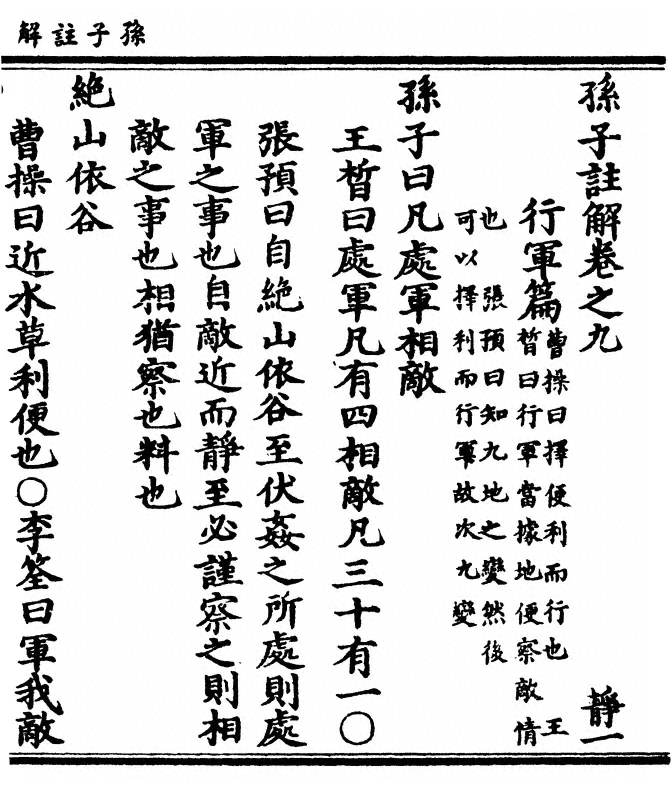 孫子註解
孫子註解卷之九
靜一
行軍篇
曹操曰擇便利而行也 王
晳曰行軍當據地便察敵情
也 張預曰知九地之變然後
可以擇利而行軍故次九變
孫子曰凡處軍相敵
王晳曰處軍凡有四相敵凡三十有一〇
張預曰自絶山依谷至伏姦之所處則處
軍之事也自敵近而靜至必謹察之則相
敵之事也相猶察也料也
絶山依谷
曹操曰近水草利便也〇李筌曰軍我敵